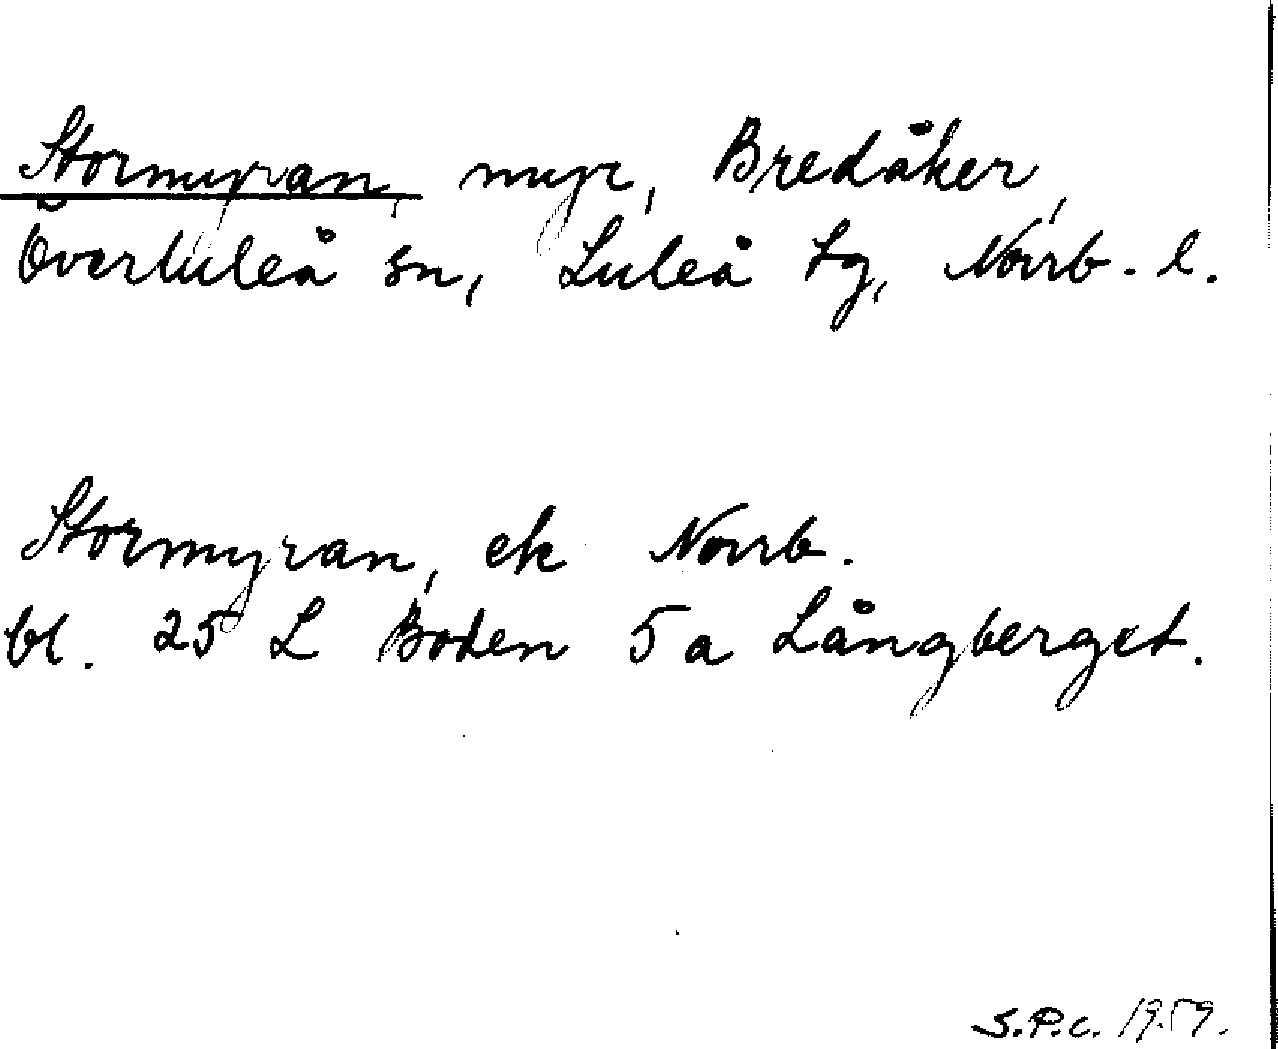 Stormyran, myr, Bredåker,
Överluleå sn, Luleå tg, Norrb. l.
Stormyran, ek Norrb.
bl. 25 L Boden 5 a Långberget.
S.P.c. 1959.